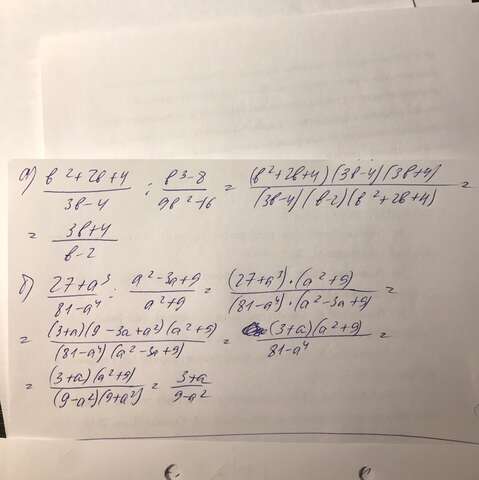 а) (в²+2в+4)/(3в-4) : (в³-8)/(9в²-16) = ((в²+2в+4)(3в-4)(3в+4))/((3в-4)(в-2)(в²+2в+4)) =
= (3в+4)/(в-2)
б) (27+a³)/(81-a⁴) : (a²-3a+9)/(a²+9) = ((27+a³)·(a²+9))/((81-a⁴)·(a²-3a+9)) =
= ((3+a)(9-3a+a²)(a²+9))/((81-a⁴)(a²-3a+9)) = ((3+a)(a²+9))/(81-a⁴) =
= ((3+a)(a²+9))/((9-a²)(9+a²)) = (3+a)/(9-a²)